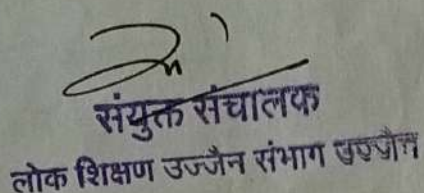 संयुक्त संचालक
लोक शिक्षण उज्जैन संभाग उज्जैन